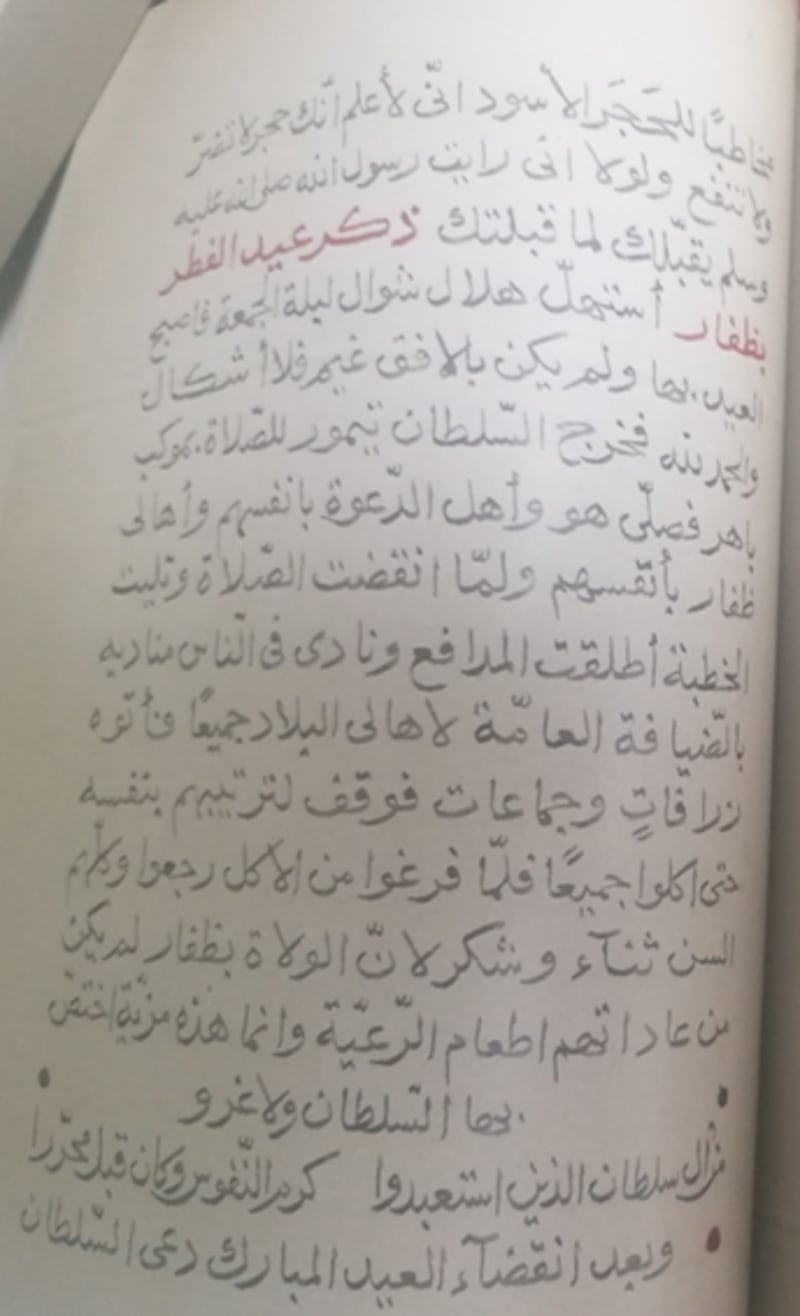 مخاطبًا للحَجَر الأسود انّى لأعلم أنّك حجر لا تضرّ
ولا تنفع ولولا انى رايت رسول الله صلى الله عليه
وسلم يقبّلك لما قبلتك ذكر عيد الفطر
بظفار أستهلّ هلال شوال ليلة الجمعة فاصبح
العيد بها ولم يكن بالافق غيم فلا أشكال
والحمد لله فخرج السّلطان تيمور للصّلاة بموكب
باهر فصلّى هو وأهل الدّعوة بانفسهم وأهالى
ظفار بأنفسهم ولمّا انقضت الصّلاة وتليت
الخطبة أطلقت المدافع ونادى فى النّاس مناديه
بالضّيافة العامّة لاهالى البلاد جميعًا فأتوه
زرافاتٍ وجماعات فوقف لترتيبهم بنفسه
حتى اكلوا جميعًا فلمّا فرغوا من الاكل رجعوا وكلهم
السن ثنآء وشكر لانّ الولاة بظفار لم يكن
من عاداتهم اطعام الرّعيّة وانما هذه مزيّة اختصّ
بها السّلطان ولا غرو
من آل سلطان الذين استعبدوا كرم النّفوس وكان قبل محرّرا
وبعد انقضآء العيد المبارك دعى السّلطان